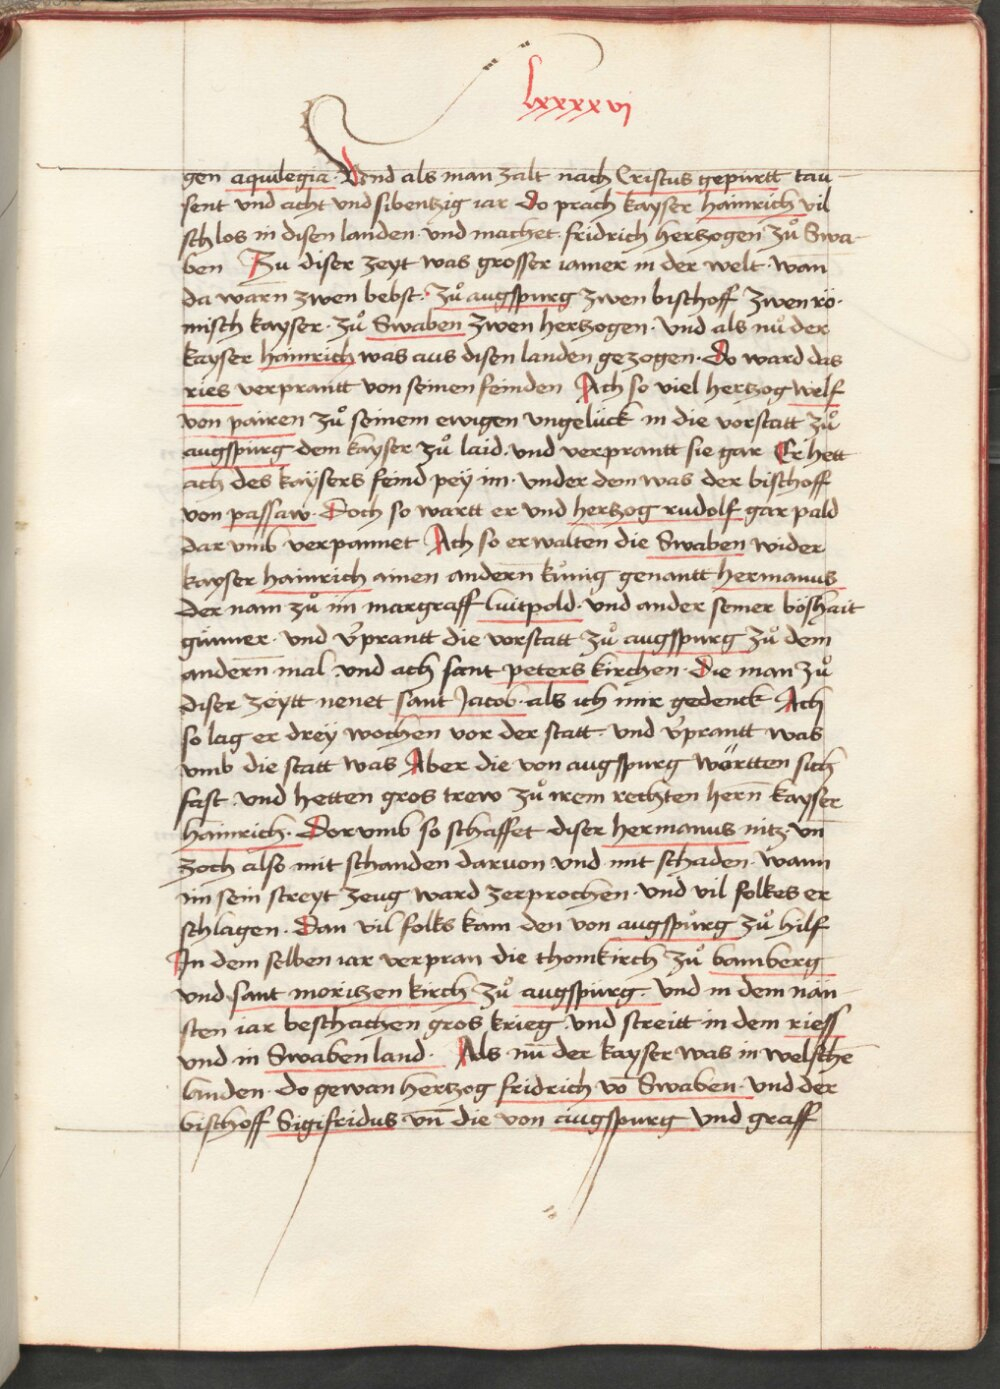 lxxxxvi
gen aquilegia. Vnd als man zalt nach Cristus gepurtt tau-
sent vnd acht vnd sibentzig iar Do prach kayser hainrich vil
schlos in disen landen. vnd machet fridrich hertzogen zů Swa-
ben Zu diser zeyt was grosser iamer in der welt. wan
da warn zwen bebst. zů augspurg zwen bischoff zwen rö-
misch kayser. zů Swaben zwen hertzogen. vnd als nů der
kayser hainrich was aus disen landen gezogen. Do ward das
ries verprantt von seinen feinden Ach so viel hertzog welf
von pairen zů seinem ewigen vngelück in die vorstatt zů
augspurg dem kayser zů laid. vnd verprantt sie gar Er hett
ach des kaysers feind pey im. vnder dem was der bischoff
von passaw. Doch so wartt er vnd hertzog rudolf gar pald
dar vmb verpannet Ach so erwalten die Swaben wider
kayser hainrich ainen andern kůnig genantt hermanus
der nam zů im margraff luitpold. vnd ander seiner böshait
günner. vnd v̉prantt die vorstatt zů augspurg zů dem
andern mal. vnd ach sant peters kirchen. Die man zů
diser zeytt nenet sant Jacob. als ich mir gedenck Ach
so lag er drey wochen vor der statt. vnd v̉prantt was
vmb die statt was Aber die von augspurg wörtten sich
fast. vnd hetten gros trew zů irem rechten hern̄ kayser
hainrich. Dor vmb so schaffet diser hermanus nitz. vn̄
zoch also mit schanden daruon vnd mit schaden. wann
im sein streyt zeug ward zerprochen. vnd vil folkes er
schlagen. Dan vil folks kam den von augspůrg zů hilf
In dem selben iar verpran die thomkirch zů bamberg
vnd sant moritzen kirch zů augspurg. vnd in dem nän-
sten iar beschachen gros krieg. vnd streitt in dem riess
vnd in Swabenland. Als nū der kayser was in welschē
landen. do gewan hertzog fridrich vō Swaben. vnd der
bischoff Sigifridus vn̄ die von augspurg vnd graff